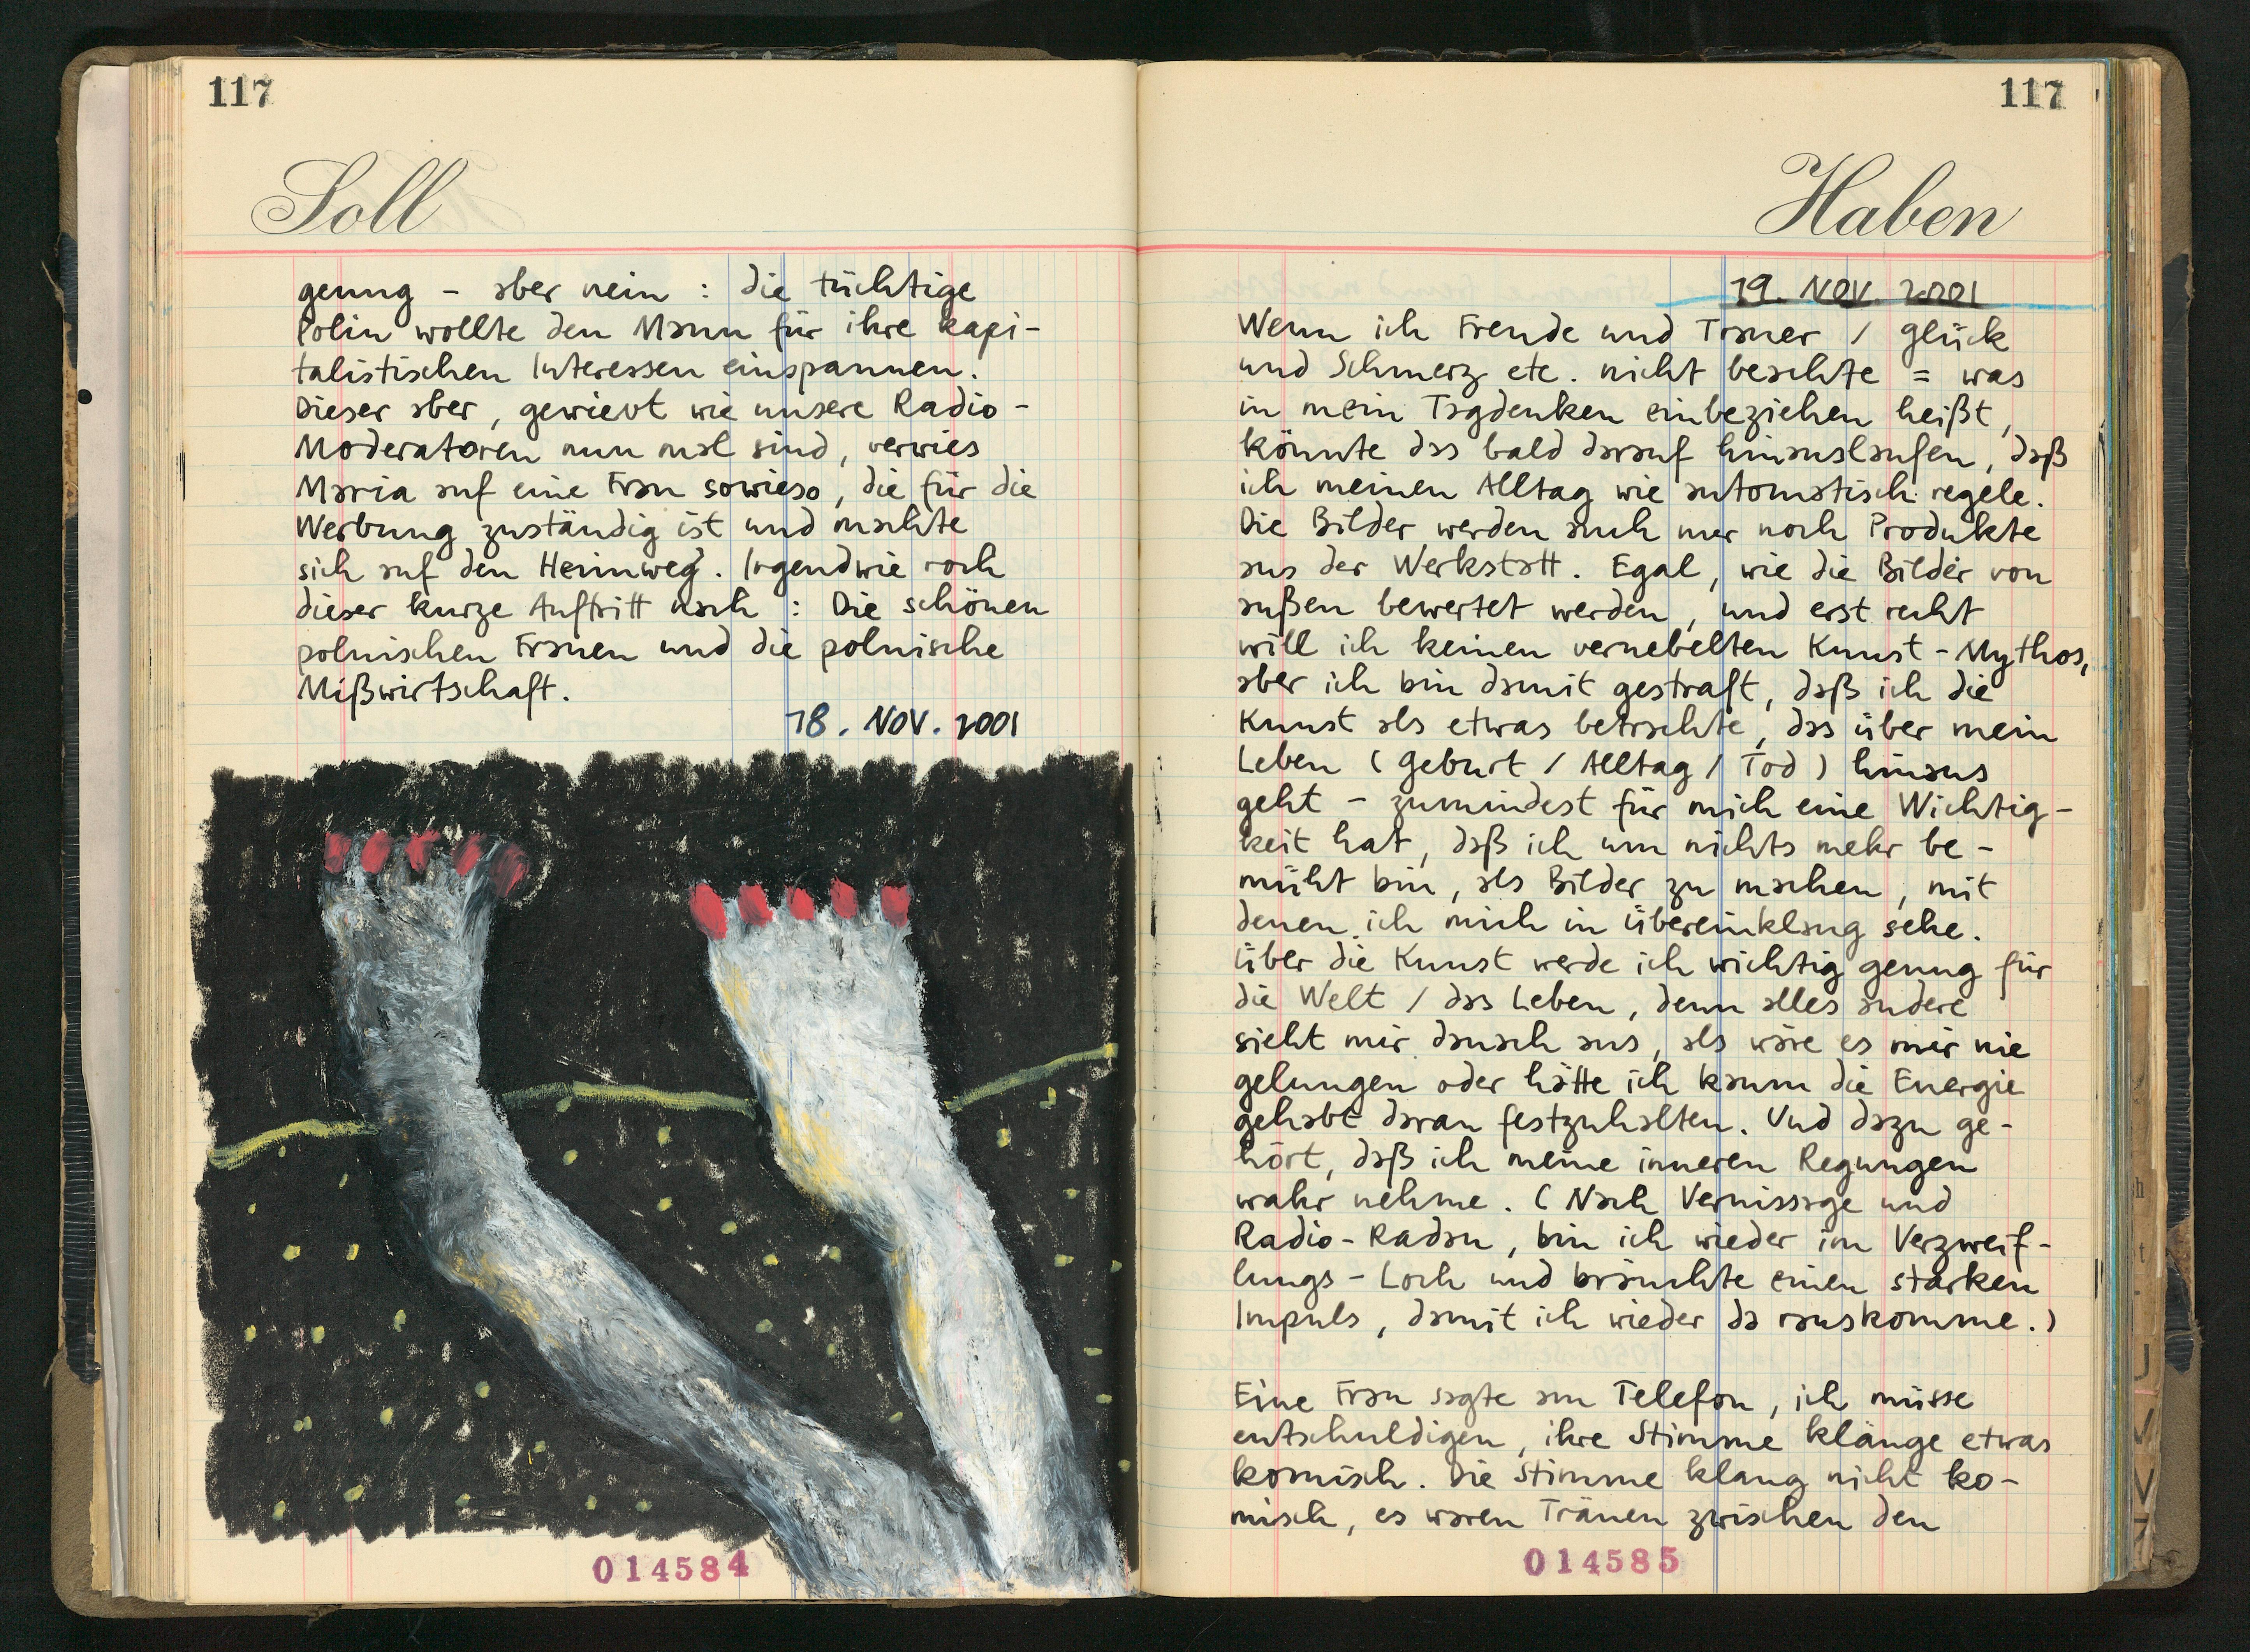 117
Soll
genug - aber nein : die tüchtige
Polin wollte den Mann für ihre kapi-
talistischen Interessen einspannen.
Dieser aber, gewieft wie unsere Radio-
Moderatoren nun mal sind, verwies
Maria auf eine Frau sowieso, die für die
Werbung zuständig ist und machte
sich auf den Heimweg. Irgendwie roch
dieser kurze Auftritt nach : Die schönen
polnischen Frauen und die polnische
Mißwirtschaft.
18. NOV. 2001
014584
117
Haben
19. NOV. 2001
Wenn ich Freude und Trauer / Glück
und Schmerz etc. nicht beachte = was
in mein Tagdenken einbeziehen heißt,
könnte das bald darauf hinauslaufen, daß
ich meinen Alltag wie automatisch regele.
Die Bilder werden auch nur noch Produkte
aus der Werkstatt. Egal, wie die Bilder von
außen bewertet werden, und erst recht
will ich keinen vernebelten Kunst-Mythos,
aber ich bin damit gestraft, daß ich die
Kunst als etwas betrachte, das über mein
Leben (Geburt / Alltag / Tod) hinaus
geht - zumindest für mich eine Wichtig-
keit hat, daß ich um nichts mehr be-
müht bin, als Bilder zu machen, mit
denen ich mich in Übereinklang sehe.
Über die Kunst werde ich wichtig genug für
die Welt / das Leben, denn alles andere
sieht mir danach aus, als wäre es mir nie
gelungen oder hätte ich kaum die Energie
gehabt daran festzuhalten. Und dazu ge-
hört, daß ich meine inneren Regungen
wahr nehme. (Nach Vernissage und
Radio-Radau, bin ich wieder im Verzweif-
lungs-Loch und bräuchte einen starken
Impuls, damit ich wieder da rauskomme.)
Eine Frau sagte am Telefon, ich müsse
entschuldigen, ihre Stimme klänge etwas
komisch. Die Stimme klang nicht ko-
misch, es waren Tränen zwischen den
014585